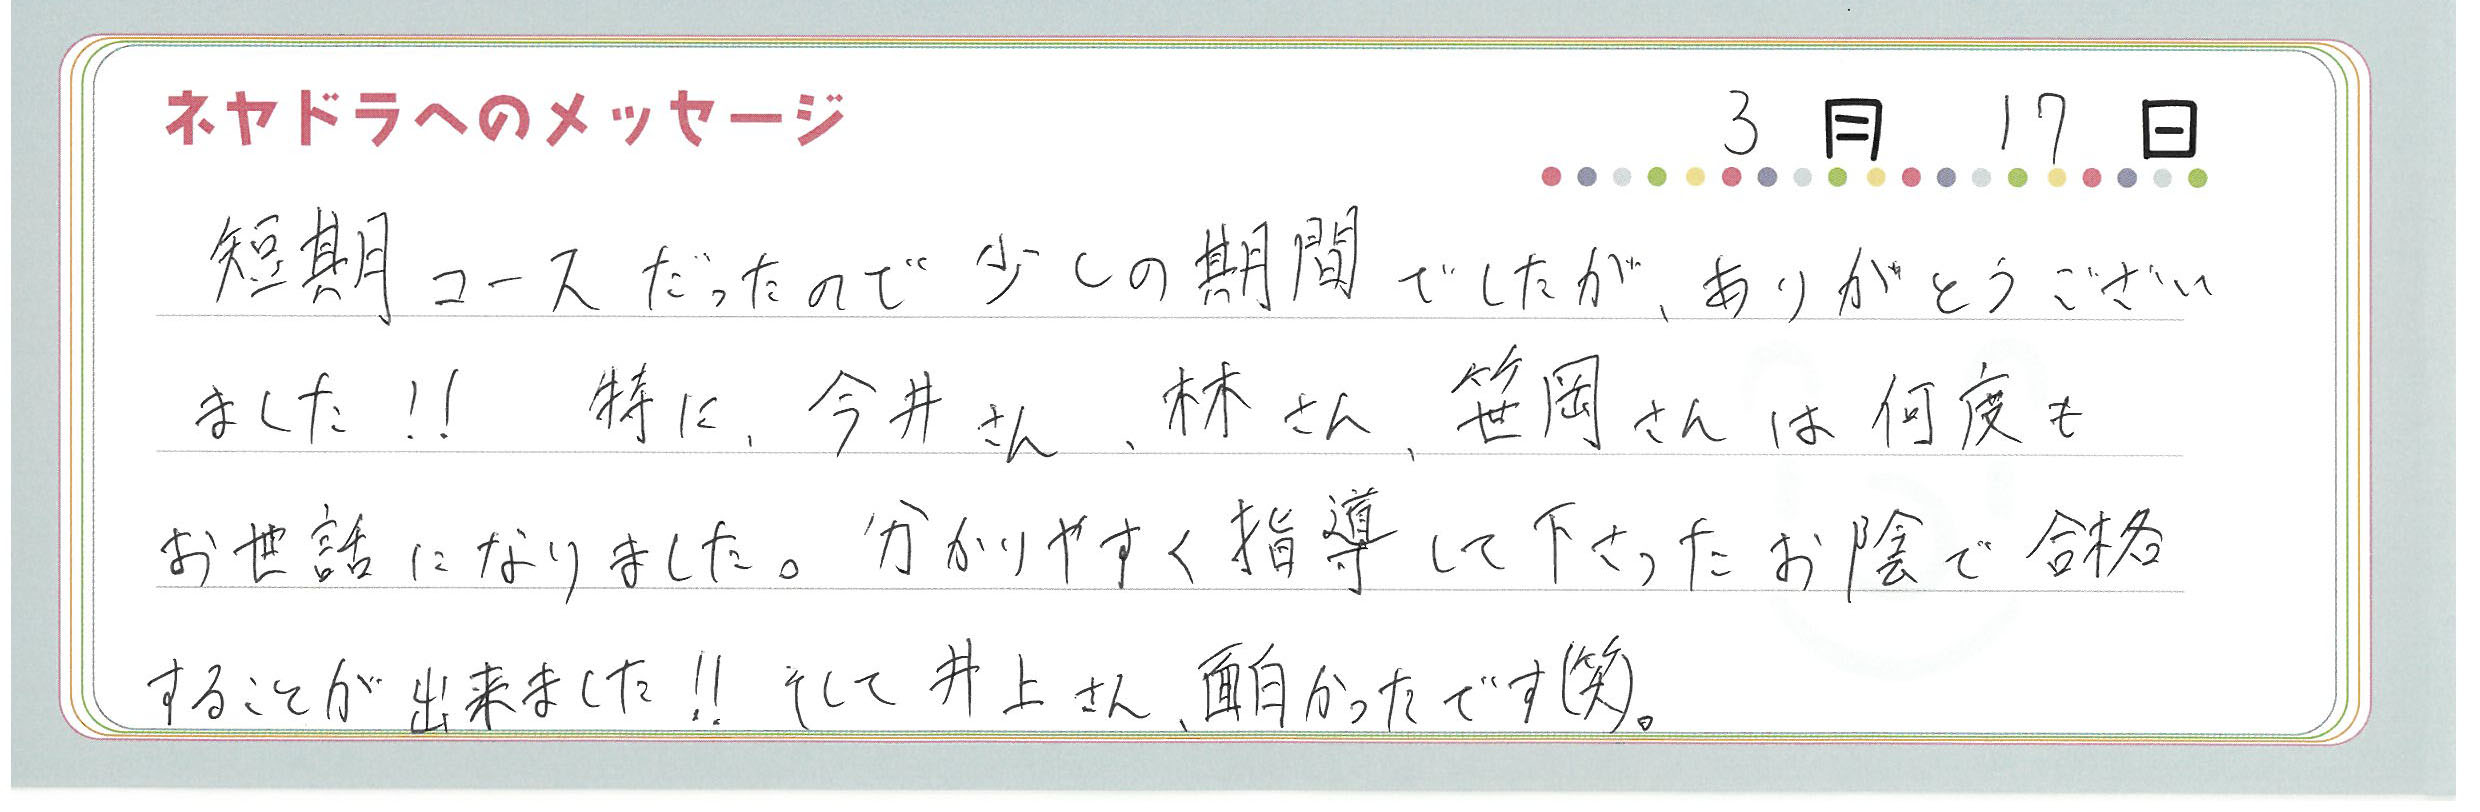 ネヤドラへのメッセージ
3月 17日
短期コースだったので少しの期間でしたが、ありがとうござい
ました!! 特に、今井さん、林さん、笹岡さんは何度も
お世話になりました。分かりやすく指導して下さったお陰で合格
することが出来ました!! そして井上さん、面白かったです(笑)。